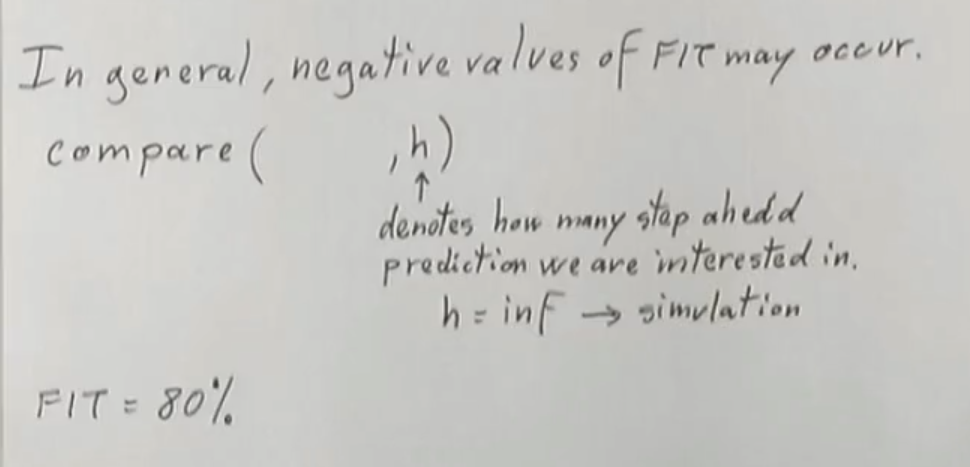 In general, negative values of FIT may occur.
compare( ,h)
↑
denotes how many step ahead
prediction we are interested in.
h = inf → simulation
FIT = 80%